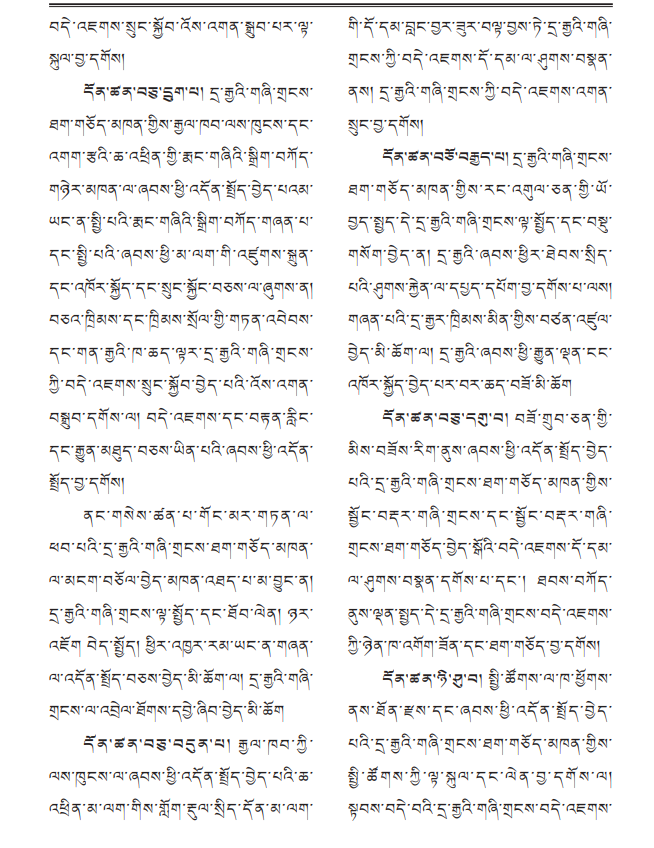 བདེ་འཇགས་སྲུང་སྐྱོབ་འོས་འགན་སྒྲུབ་པར་ལྟ་
སྐུལ་བྱ་དགོས།
དོན་ཚན་བཅུ་དྲུག་པ། དྲ་རྒྱའི་གཞི་གྲངས་
ཐག་གཅོད་མཁན་གྱིས་རྒྱལ་ཁབ་ལས་ཁུངས་དང་
འགག་རྩའི་ཆ་འཕྲིན་གྱི་རྨང་གཞིའི་སྒྲིག་བཀོད་
གཉེར་མཁན་ལ་ཞབས་ཕྱི་འདོན་སྤྲོད་བྱེད་པའམ་
ཡང་ན་སྤྱི་པའི་རྨང་གཞིའི་སྒྲིག་བཀོད་གཞན་པ་
དང་སྤྱི་པའི་ཞབས་ཕྱི་མ་ལག་གི་འཛུགས་སྐྲུན་
དང་འཁོར་སྐྱོད་དང་སྲུང་སྐྱོང་བཅས་ལ་ཞུགས་ན།
བཅའ་ཁྲིམས་དང་ཁྲིམས་སྲོལ་གྱི་གཏན་འབེབས་
དང་གན་རྒྱའི་ཁ་ཆད་ལྟར་དྲ་རྒྱའི་གཞི་གྲངས་
ཀྱི་བདེ་འཇགས་སྲུང་སྐྱོབ་བྱེད་པའི་འོས་འགན་
བསྒྲུབ་དགོས་ལ། བདེ་འཇགས་དང་བརྟན་ལྷིང་
དང་རྒྱུན་མཐུད་བཅས་ཡིན་པའི་ཞབས་ཕྱི་འདོན་
སྤྲོད་བྱ་དགོས།
ནང་གསེས་ཚན་པ་གོང་མར་གཏན་ལ་
ཕབ་པའི་དྲ་རྒྱའི་གཞི་གྲངས་ཐག་གཅོད་མཁན་
ལ་མངག་བཅོལ་བྱེད་མཁན་འཐད་པ་མ་བྱུང་ན།
དྲ་རྒྱའི་གཞི་གྲངས་ལྟ་སྤྱོད་དང་ཐོབ་ལེན། ཉར་
འཇོག བེད་སྤྱོད། ཕྱིར་འཁྱར་རམ་ཡང་ན་གཞན་
ལ་འདོན་སྤྲོད་བཅས་བྱེད་མི་ཆོག་ལ། དྲ་རྒྱའི་གཞི་
གྲངས་ལ་འབྲེལ་ཐོགས་དབྱེ་ཞིབ་བྱེད་མི་ཆོག
དོན་ཚན་བཅུ་བདུན་པ། རྒྱལ་ཁབ་ཀྱི་
ལས་ཁུངས་ལ་ཞབས་ཕྱི་འདོན་སྤྲོད་བྱེད་པའི་ཆ་
འཕྲིན་མ་ལག་གིས་གློག་རྡུལ་སྲིད་དོན་མ་ལག་
གི་དོ་དམ་བླང་བྱར་ཟུར་བལྟ་བྱས་ཏེ་དྲ་རྒྱའི་གཞི་
གྲངས་ཀྱི་བདེ་འཇགས་དོ་དམ་ལ་ཤུགས་བསྣན་
ནས། དྲ་རྒྱའི་གཞི་གྲངས་ཀྱི་བདེ་འཇགས་འགན་
སྲུང་བྱ་དགོས།
དོན་ཚན་བཅོ་བརྒྱད་པ། དྲ་རྒྱའི་གཞི་གྲངས་
ཐག་གཅོད་མཁན་གྱིས་རང་འགུལ་ཅན་གྱི་ཡོ་
བྱད་སྤྱད་དེ་དྲ་རྒྱའི་གཞི་གྲངས་ལྟ་སྤྱོད་དང་བསྡུ་
གསོག་བྱེད་ན། དྲ་རྒྱའི་ཞབས་ཕྱིར་ཐེབས་སྲིད་
པའི་ཤུགས་རྐྱེན་ལ་དཔྱད་དཔོག་བྱ་དགོས་པ་ལས།
གཞན་པའི་དྲ་རྒྱར་ཁྲིམས་མིན་གྱིས་བཙན་འཛུལ་
བྱེད་མི་ཆོག་ལ། དྲ་རྒྱའི་ཞབས་ཕྱི་རྒྱུན་ལྡན་ངང་
འཁོར་སྐྱོད་བྱེད་པར་བར་ཆད་བཟོ་མི་ཆོག
དོན་ཚན་བཅུ་དགུ་བ། བཟོ་གྲུབ་ཅན་གྱི་
མིས་བཟོས་རིག་ནུས་ཞབས་ཕྱི་འདོན་སྤྲོད་བྱེད་
པའི་དྲ་རྒྱའི་གཞི་གྲངས་ཐག་གཅོད་མཁན་གྱིས་
སྦྱོང་བརྡར་གཞི་གྲངས་དང་སྦྱོང་བརྡར་གཞི་
གྲངས་ཐག་གཅོད་བྱེད་སྒོའི་བདེ་འཇགས་དོ་དམ་
ལ་ཤུགས་བསྣན་དགོས་པ་དང་། ཐབས་བཀོད་
ནུས་ལྡན་སྤྱད་དེ་དྲ་རྒྱའི་གཞི་གྲངས་བདེ་འཇགས་
ཀྱི་ཉེན་ཁ་འགོག་ཟོན་དང་ཐག་གཅོད་བྱ་དགོས།
དོན་ཚན་ཉི་ཤུ་བ། སྤྱི་ཚོགས་ལ་ཁ་ཕྱོགས་
ནས་ཐོན་རྫས་དང་ཞབས་ཕྱི་འདོན་སྤྲོད་བྱེད་
པའི་དྲ་རྒྱའི་གཞི་གྲངས་ཐག་གཅོད་མཁན་གྱིས་
སྤྱི་ཚོགས་ཀྱི་ལྟ་སྐུལ་དང་ལེན་བྱ་དགོས་ལ།
སྟབས་བདེ་བའི་དྲ་རྒྱའི་གཞི་གྲངས་བདེ་འཇགས་